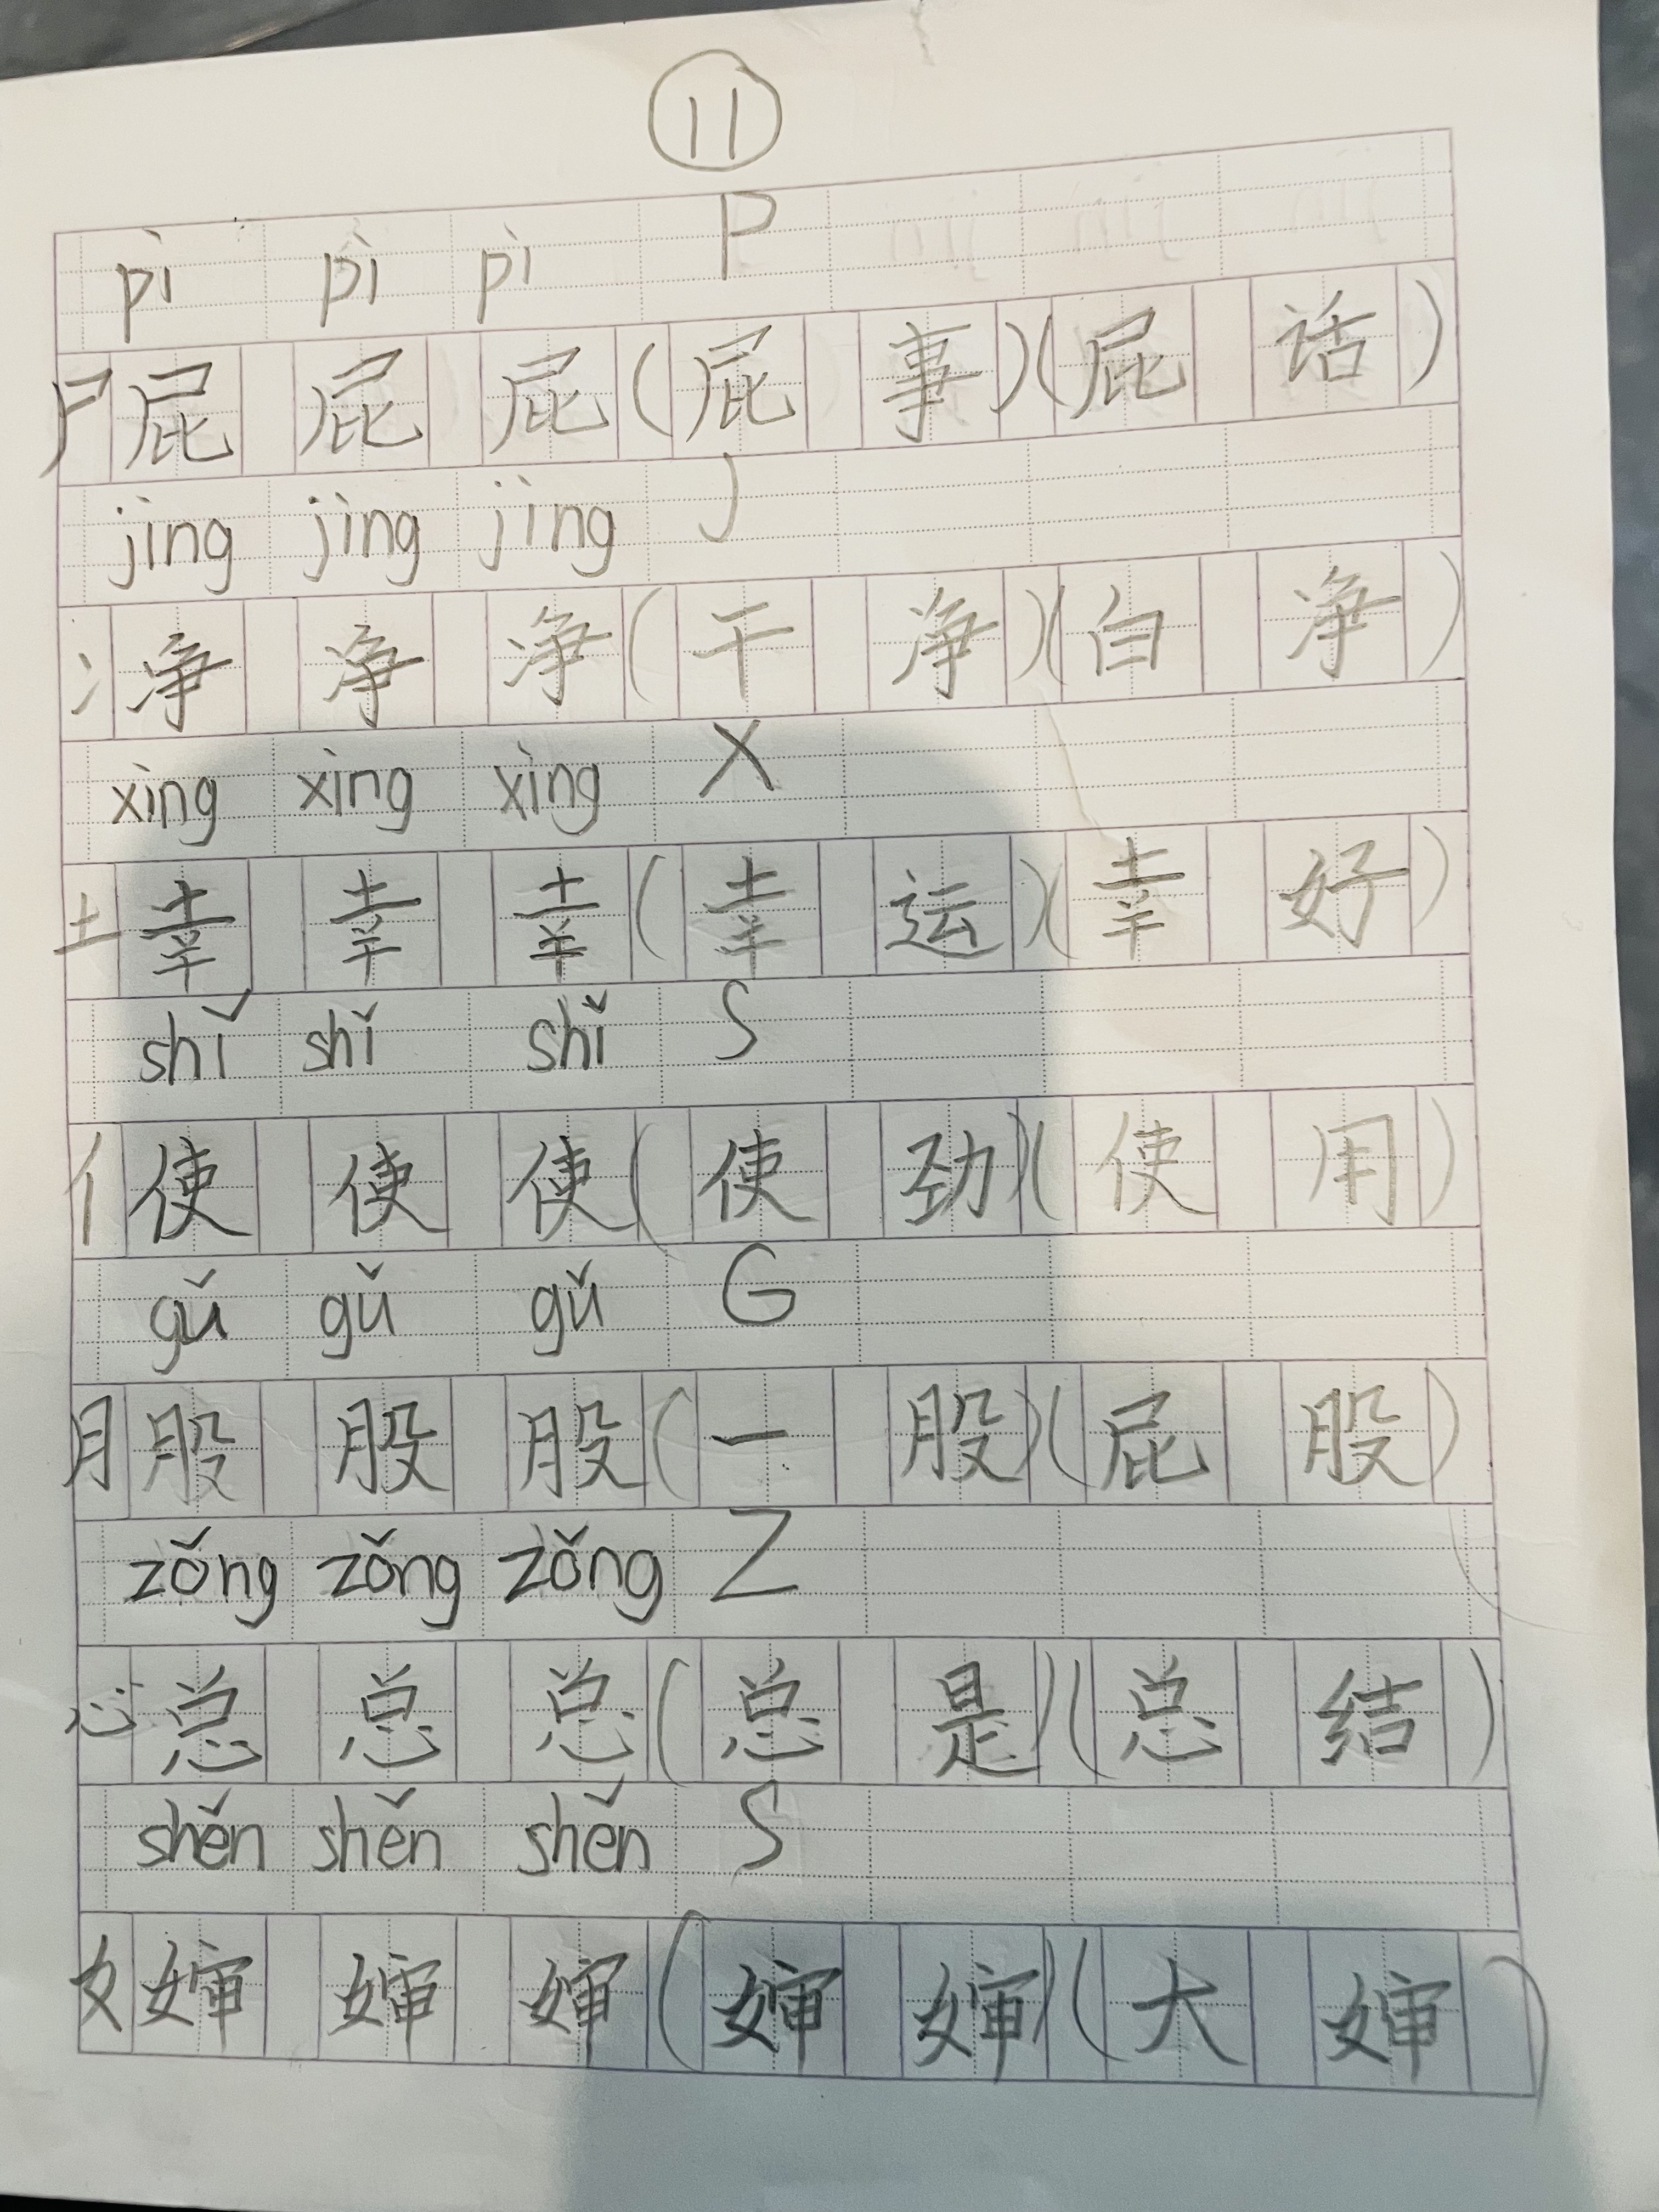 11
pì pì pì P
尸 屁 屁 屁 (屁事)(屁话)
jìng jìng jìng J
冫 净 净 净 (干净)(白净)
xìng xìng xìng X
土 幸 幸 幸 (幸运)(幸好)
shǐ shǐ shǐ S
亻 使 使 使 (使劲)(使用)
gǔ gǔ gǔ G
月 股 股 股 (一股)(屁股)
zǒng zǒng zǒng Z
心 总 总 总 (总是)(总结)
shěn shěn shěn S
女 婶 婶 婶 (婶婶)(大婶)